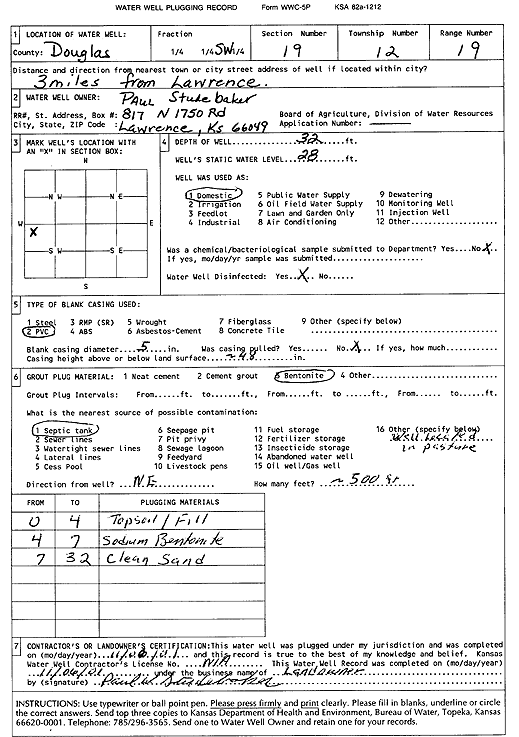 WATER WELL PLUGGING RECORD Form WWC-5P KSA 82a-1212
1 LOCATION OF WATER WELL: Fraction Section Number Township Number Range Number
County: Douglas 1/4 1/4 SW 1/4 19 12 19
Distance and direction from nearest town or city street address of well if located within city?
3 miles from Lawrence.
2 WATER WELL OWNER: PAUL Studebaker
RR#, St. Address, Box #: 817 N 1750 Rd Board of Agriculture, Division of Water Resources
City, State, ZIP Code : Lawrence, Ks 66049 Application Number:
3 MARK WELL'S LOCATION WITH AN "X" IN SECTION BOX:
N
NW NE
W E
X
SW SE
S
4 DEPTH OF WELL 32 ft.
WELL'S STATIC WATER LEVEL 28 ft.
WELL WAS USED AS:
1 Domestic 5 Public Water Supply 9 Dewatering
2 Irrigation 6 Oil Field Water Supply 10 Monitoring Well
3 Feedlot 7 Lawn and Garden Only 11 Injection Well
4 Industrial 8 Air Conditioning 12 Other
Was a chemical/bacteriological sample submitted to Department? Yes....No X.
If yes, mo/day/yr sample was submitted
Water Well Disinfected: Yes X No
5 TYPE OF BLANK CASING USED:
1 Steel 3 RMP (SR) 5 Wrought 7 Fiberglass 9 Other (specify below)
2 PVC 4 ABS 6 Asbestos-Cement 8 Concrete Tile
Blank casing diameter 5 in. Was casing pulled? Yes...... No X. If yes, how much
Casing height above or below land surface ~48 in.
6 GROUT PLUG MATERIAL: 1 Neat cement 2 Cement grout 3 Bentonite 4 Other
Grout Plug Intervals: From.....ft. to ......ft., From.....ft. to .....ft., From..... to......ft.
What is the nearest source of possible contamination:
1 Septic tank 6 Seepage pit 11 Fuel storage 16 Other (specify below)
2 Sewer lines 7 Pit privy 12 Fertilizer storage
3 Watertight sewer lines 8 Sewage lagoon 13 Insecticide storage in pasture
4 Lateral lines 9 Feedyard 14 Abandoned water well
5 Cess Pool 10 Livestock pens 15 Oil well/Gas well
Direction from well? N.E. How many feet? ~500 ft
FROM TO PLUGGING MATERIALS
0 4 Topsoil / Fill
4 7 Sodium Bentonite
7 32 Clean Sand
7 CONTRACTOR'S OR LANDOWNER'S CERTIFICATION: This water well was plugged under my jurisdiction and was completed
on (mo/day/year) 11/06/01 and this record is true to the best of my knowledge and belief. Kansas
Water Well Contractor's License No. N/A This Water Well Record was completed on (mo/day/year)
11/06/01 under the business name of Landowner
by (signature) Paul W. Studebaker
INSTRUCTIONS: Use typewriter or ball point pen. Please press firmly and print clearly. Please fill in blanks, underline or circle
the correct answers. Send top three copies to Kansas Department of Health and Environment, Bureau of Water, Topeka, Kansas
66620-0001. Telephone: 785/296-3565. Send one to Water Well Owner and retain one for your records.